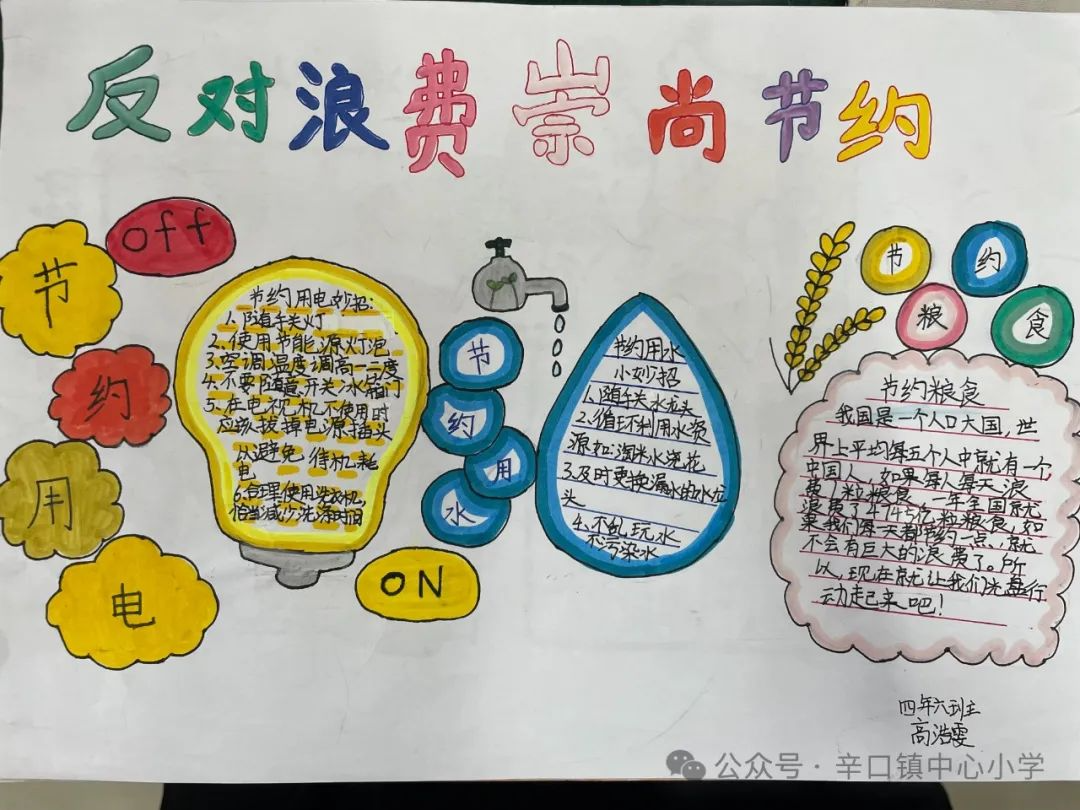 反对浪费崇尚节约
off
节
约
用
电
节约用电妙招:
1、随手关灯
2、使用节能源灯泡
3、空调温度调高一二度
4、不要随意开关冰箱门
5、在电视机不使用时
应该拔掉电源插头
从避免待机耗
电
6、合理使用洗衣机,
恰当减少洗涤时间
ON
节
约
用
水
节约用水
小妙招
1、随手关水龙头
2、循环利用水资
源如淘米水浇花
3、及时更换漏水的水龙
头
4、不乱玩水
不污染水
节
约
粮
食
节约粮食
我国是一个人口大国,世
界上平均每五个人中就有一个
中国人,如果每人每天浪
费一粒粮食,一年全国就
浪费了4745亿粒粮食,如
果我们每天都节约一点,就
不会有巨大的浪费了。所
以,现在就让我们光盘行
动起来吧!
四年六班
高浩雯
公众号·辛口镇中心小学